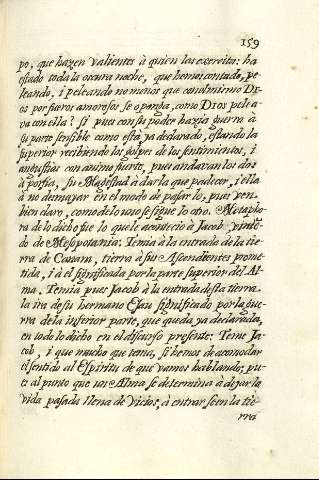 159
po, que hazen valientes à quien los exercita: ha
estado toda la oscura noche, que hemos contado, pe-
leando, i peleando no menos que con el mismo Di-
os por fueros amorosos se oponga, como DIOS pelea-
va con ella! si pues con su poder hazia guerra à
su parte sensible como esta ya declarado, estando la
superior recibiendo los golpes de los sentimientos, i
angustias con animo fuerte, pues andavan los dos
à porfia, su Magestad à darla que padecer, i ella
à no desmayar en el modo de pasarlo, pues ven-
bien claro, como de lo uno se sigue lo otro. Metapho-
ra de lo dicho fue lo que le acontecio à Jacob vinien-
do de Mesopotania. Temia à la entrada de la tie-
rra de Canam, tierra à sus Ascendientes prome-
tida, i à el significada por la parte superior del Al-
ma. Temia pues Jacob à la entrada desta tierra
la ira de su hermano Esau significado por la gue-
rra de la inferior parte, que queda ya declarada,
en todo lo dicho en el discurso presente: Teme Ja-
cob, i que mucho que tema, si hemos de acomodar
el sentido al Espiritu de que vamos hablando; pu-
es al punto que un Alma se determina à dejar la
vida pasada llena de vicios, à entrarse en la tie-
rra